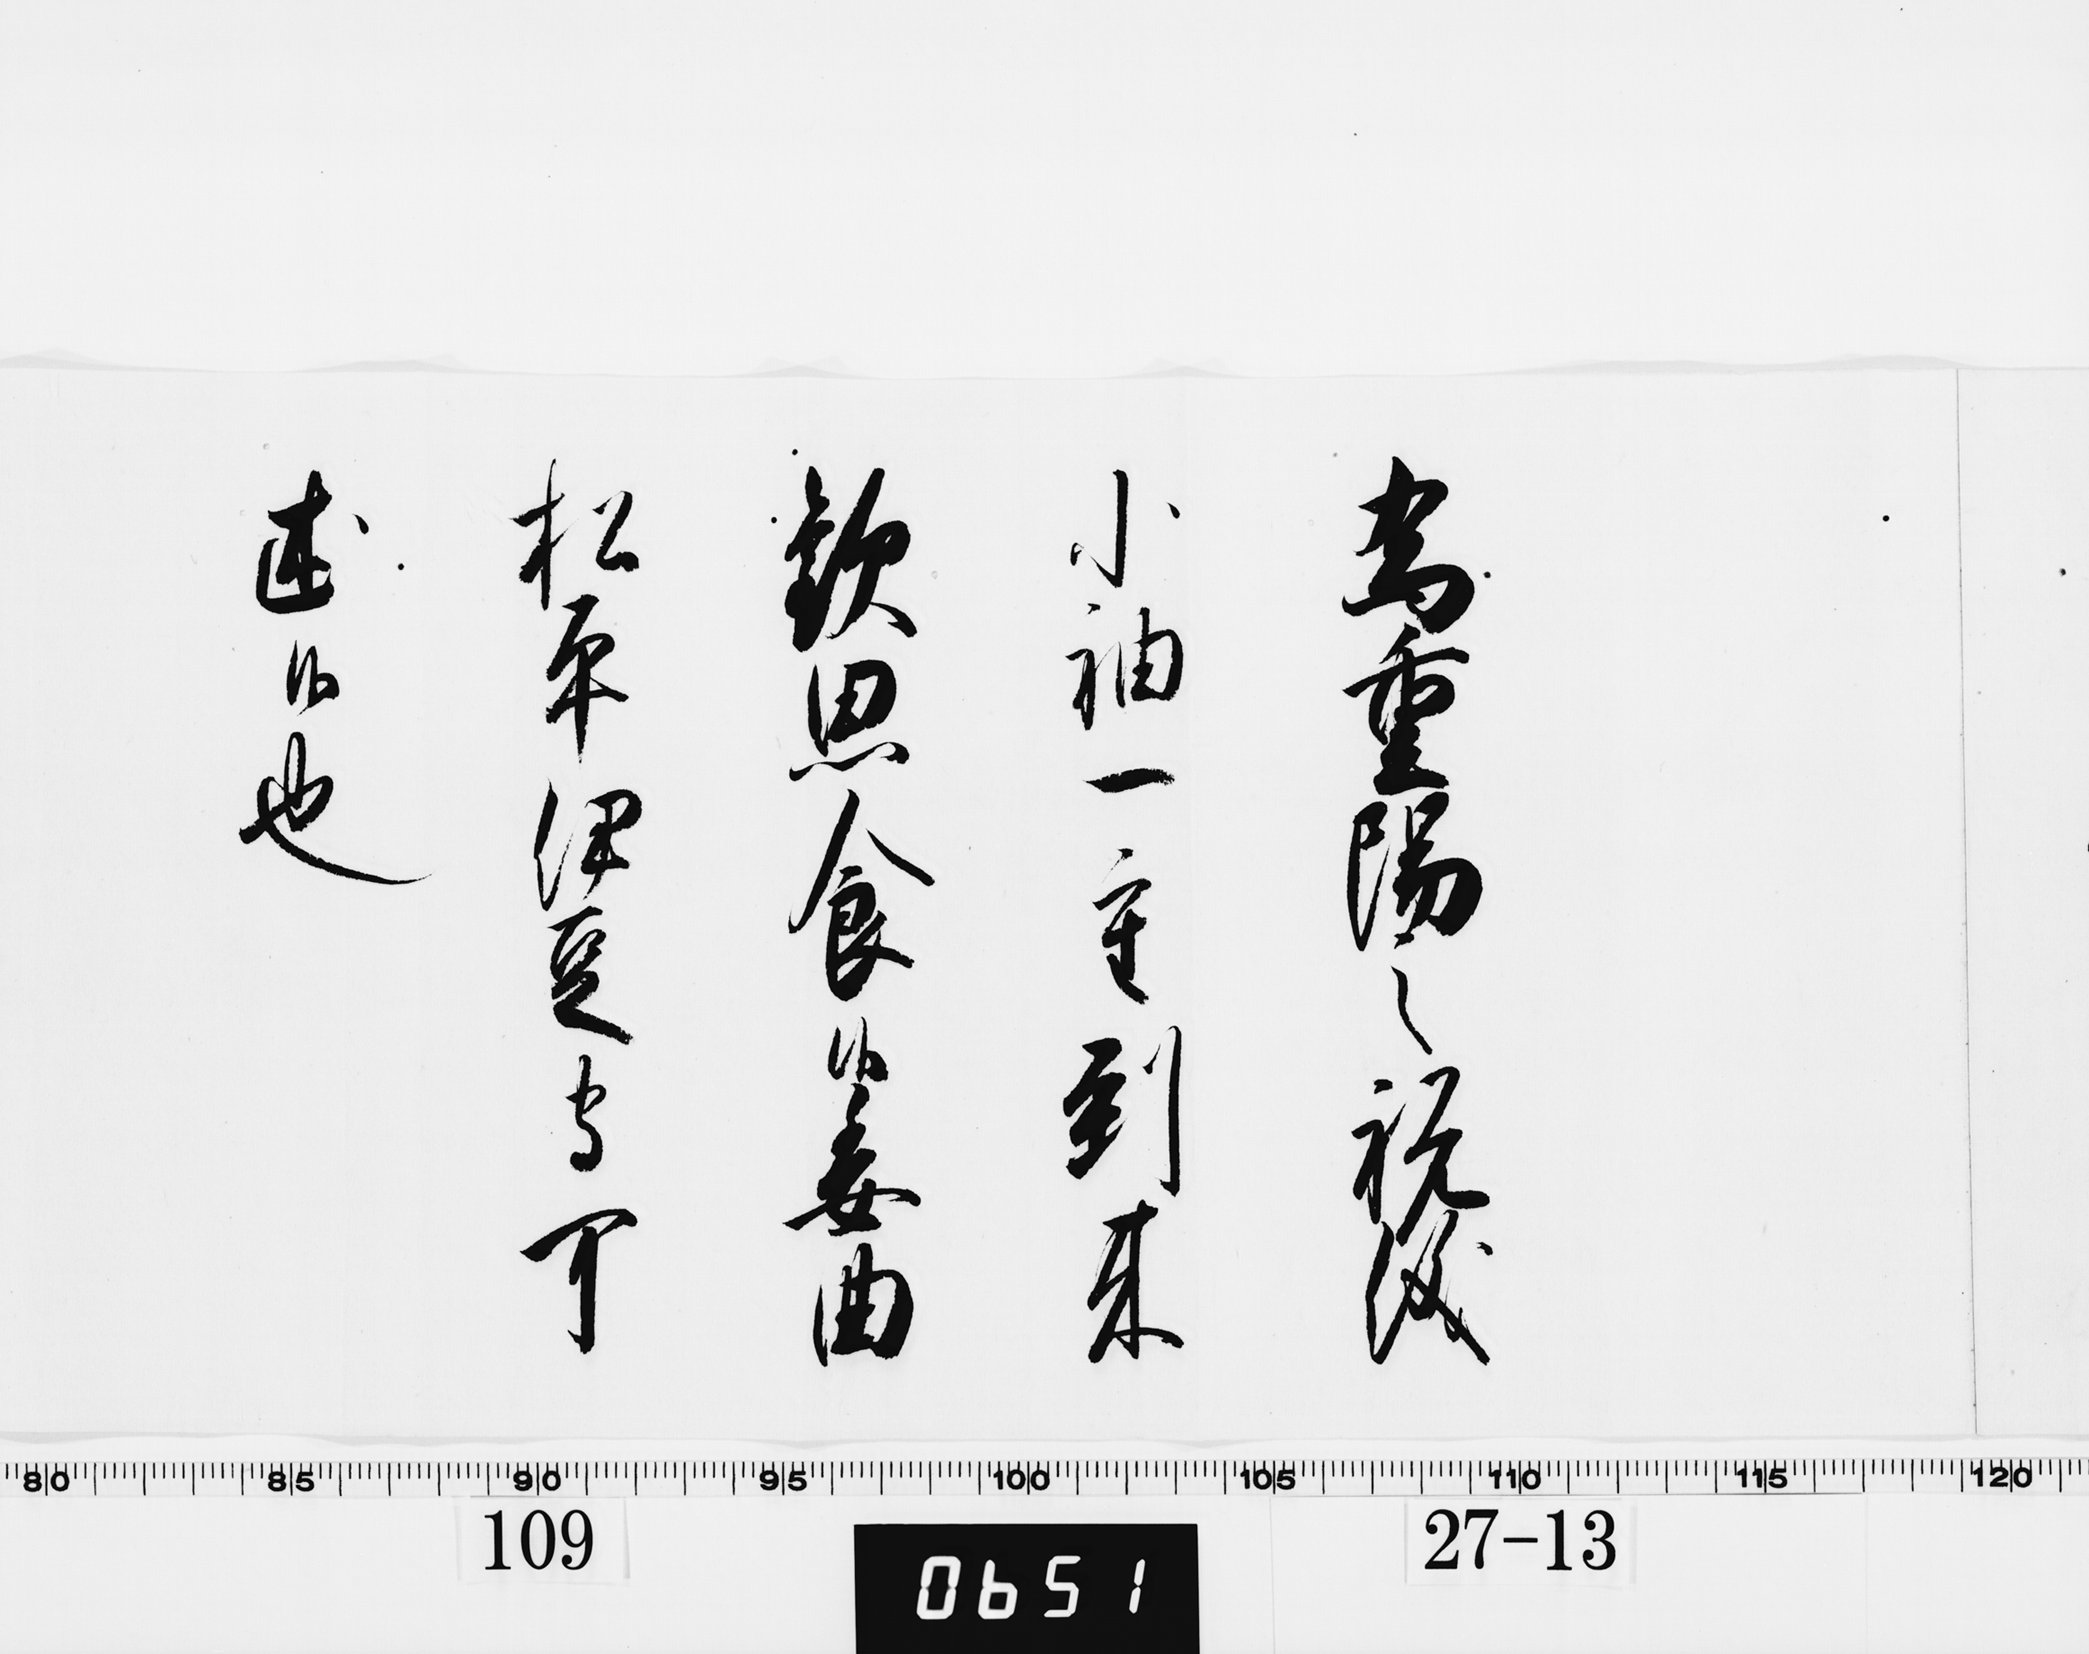 為重陽之祝儀
小袖一重到来
歓思食候委曲
松平伊豆守可
述候也
80 85 90 95 100 105 110 115 120
109
0651
27-13